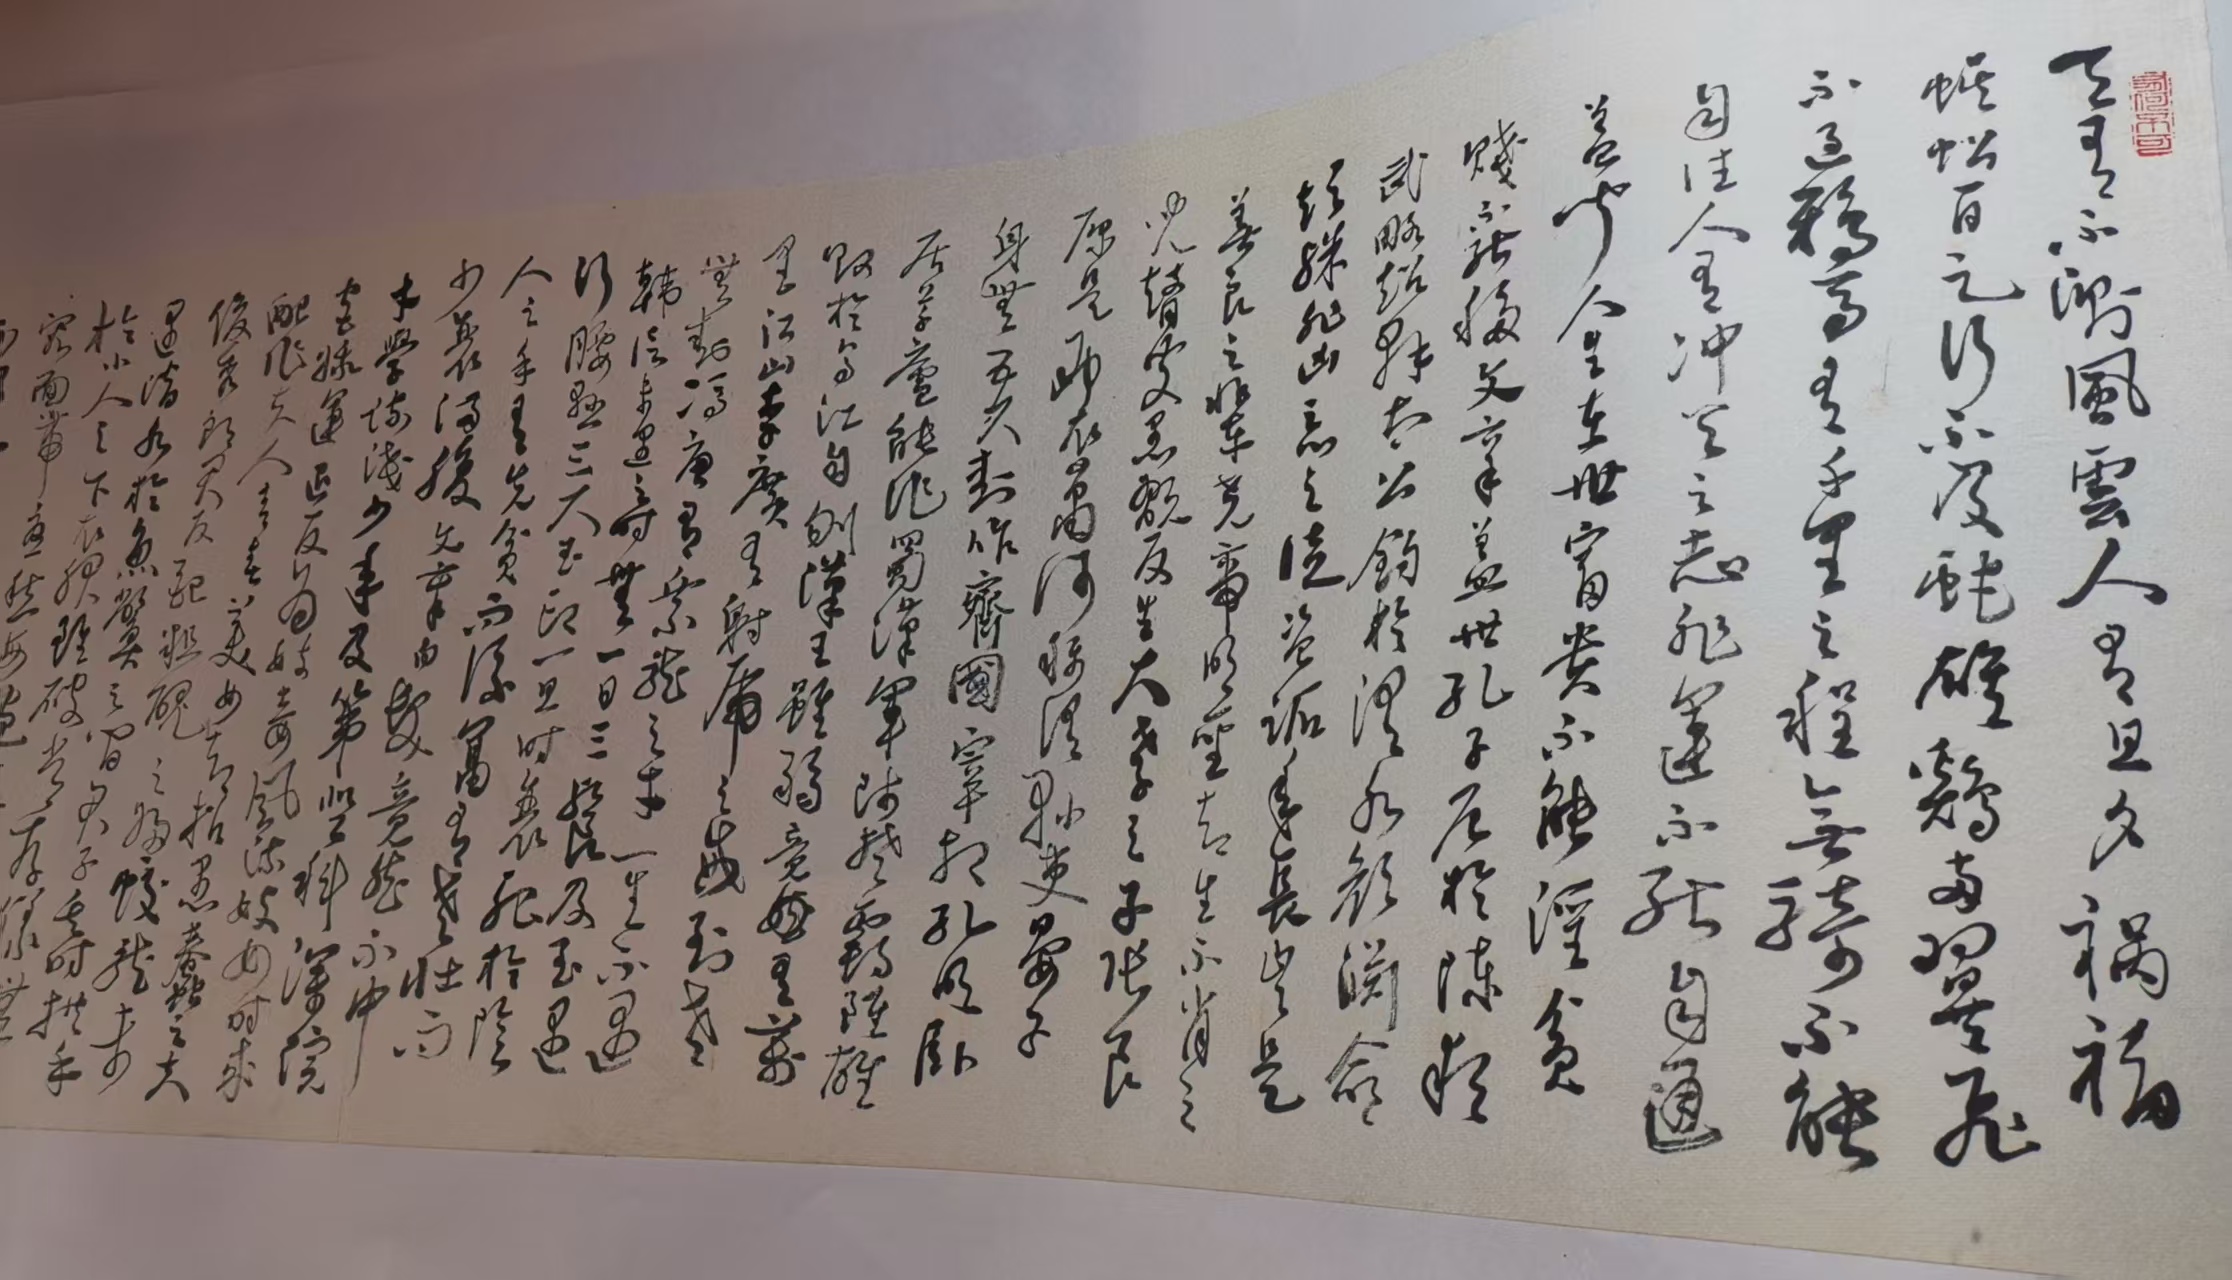 天有不測風雲人有旦夕禍福
蜈蚣百足行不及蛇雄鷄兩翼飛
不過鴉馬有千里之程無騎不能
自往人有冲天之志非運不能自通
蓋聞人生在世富貴不能淫貧
賤不能移文章蓋世孔子厄於陳邦
武略超群太公釣於渭水顏淵命
短殊非凶惡之徒盜跖年長豈是
善良之輩堯帝明聖却生不肖之
兒瞽叟愚頑反生大孝之子張良
原是布衣蕭何稱謂縣吏晏子
身無五尺封作齊國宰相孔明卧
居草廬能作蜀漢軍師楚霸雖雄
敗於烏江自刎漢王雖弱竟有萬
里江山李廣有射虎之威到老
無封馮唐有乘龍之才一生不遇
韓信未遇之時無一日三餐及至遇
行腰懸三尺玉印一旦時衰死於陰
人之手有先貧而後富有老壯而
少衰滿腹文章白髮竟然不中
才學疏淺少年及第登科深院
宮娥運退反為妓妾風流妓女時來
配作夫人青春美女却招愚蠢之夫
俊秀郎君反配粗醜之婦蛟龍未
遇潛水於魚鱉之間君子失時拱手
於小人之下衣服雖破常存儀禮
容面帶憂愁每